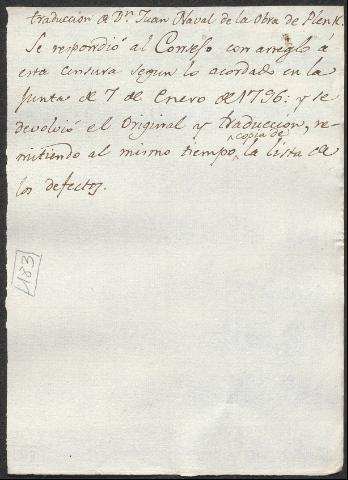 traduccion de Dn. Juan Naval de la Obra de Plenk.
Se respondió al Consejo con arreglo á
esta censura segun lo acordado en la
Junta de 7 de Enero de 1796: y se
devolvió el Original y traduccion, re-
mitiendo al mismo tiempo ^copia de la lista de
los defectos.
1183